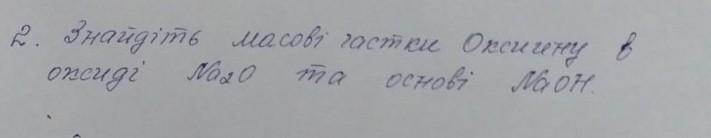 2. Знайдіть масові частки Оксигену в
оксиді Na₂O та основі NaOH.